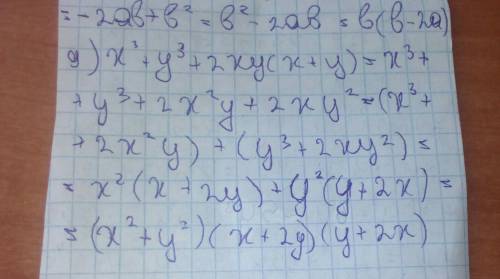 = -2ав + в² = в² - 2ав = в(в-2а)
д) x³ + y³ + 2xy(x+y) = x³ +
+ y³ + 2x²y + 2xy² = (x³ +
+ 2x²y) + (y³ + 2xy²) =
= x²(x + 2y) + y²(y + 2x) =
= (x² + y²)(x + 2y)(y + 2x)